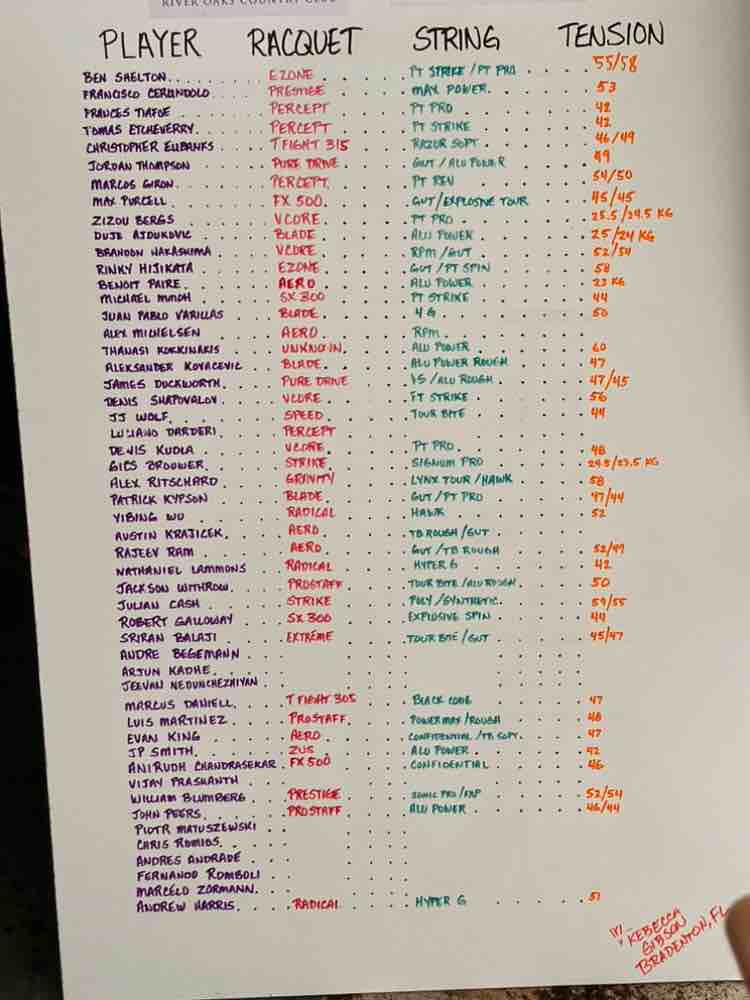 RIVER OAKS COUNTRY CLUB
PLAYER RACQUET STRING TENSION
BEN SHELTON EZONE PT STRIKE/PT PRO 55/58
FRANCISCO CERUNDOLO PRESTIGE MAX POWER 53
FRANCES TIAFOE PERCEPT PT PRO 42
TOMAS ETCHEVERRY PERCEPT PT STRIKE 42
CHRISTOPHER EUBANKS T FIGHT 315 RAZOR SOFT 46/49
JORDAN THOMPSON PURE DRIVE GUT/ALU POWER 49
MARCOS GIRON PERCEPT PT REV 54/50
MAX PURCELL FX 500 GUT/EXPLOSIVE TOUR 45/45
ZIZOU BERGS VCORE PT PRO 25.5/24.5 KG
DUJE AJDUKOVIC BLADE ALU POWER 25/24 KG
BRANDON NAKASHIMA VCORE RPM/GUT 52/54
RINKY HIJIKATA EZONE GUT/PT SPIN 58
BENOIT PAIRE AERO ALU POWER 23 KG
MICHAEL MMOH SX 300 PT STRIKE 44
JUAN PABLO VARILLAS BLADE 4G 50
ALEX MICHELSEN AERO RPM
THANASI KOKKINAKIS UNKNOWN ALU POWER 60
ALEKSANDER KOVACEVIC BLADE ALU POWER ROUGH 47
JAMES DUCKWORTH PURE DRIVE VS/ALU ROUGH 47/45
DENIS SHAPOVALOV VCORE PT STRIKE 56
JJ WOLF SPEED TOUR BITE 44
LUCIANO DARDERI PERCEPT
DENIS KUDLA VCORE PT PRO 48
GIJS BROUWER STRIKE SIGNUM PRO 24.5/23.5 KG
ALEX RITSCHARD GRAVITY LYNX TOUR/HAWK 58
PATRICK KYPSON BLADE GUT/PT PRO 47/44
YIBING WU RADICAL HAWK 52
AUSTIN KRAJICEK AERO TB ROUGH/GUT
RAJEEV RAM AERO GUT/TB ROUGH 52/49
NATHANIEL LAMMONS RADICAL HYPER G 42
JACKSON WITHROW PROSTAFF TOUR BITE/ALU ROUGH 50
JULIAN CASH STRIKE POLY/SYNTHETIC 59/55
ROBERT GALLOWAY SX 300 EXPLOSIVE SPIN 44
SRIRAN BALAJI EXTREME TOUR BITE/GUT 45/47
ANDRE BEGEMANN
ARJUN KADHE
JEEVAN NEDUNCHEZHIYAN
MARCUS DANIELL T FIGHT 305 BLACK CODE 47
LUIS MARTINEZ PROSTAFF POWER MAX/ROUGH 48
EVAN KING AERO CONFIDENTIAL/TB SOFT 47
JP SMITH ZUS ALU POWER 42
ANIRUDH CHANDRASEKAR FX 500 CONFIDENTIAL 46
VIJAY PRASHANTH
WILLIAM BLUMBERG PRESTIGE SONIC PRO/RXP 52/54
JOHN PEERS PROSTAFF ALU POWER 46/44
PIOTR MATUSZEWSKI
CHRIS ROMIOS
ANDRES ANDRADE
FERNANDO ROMBOLI
MARCELO ZORMANN
ANDREW HARRIS RADICAL HYPER G 51
REBECCA
GIBSON
BRADENTON, FL